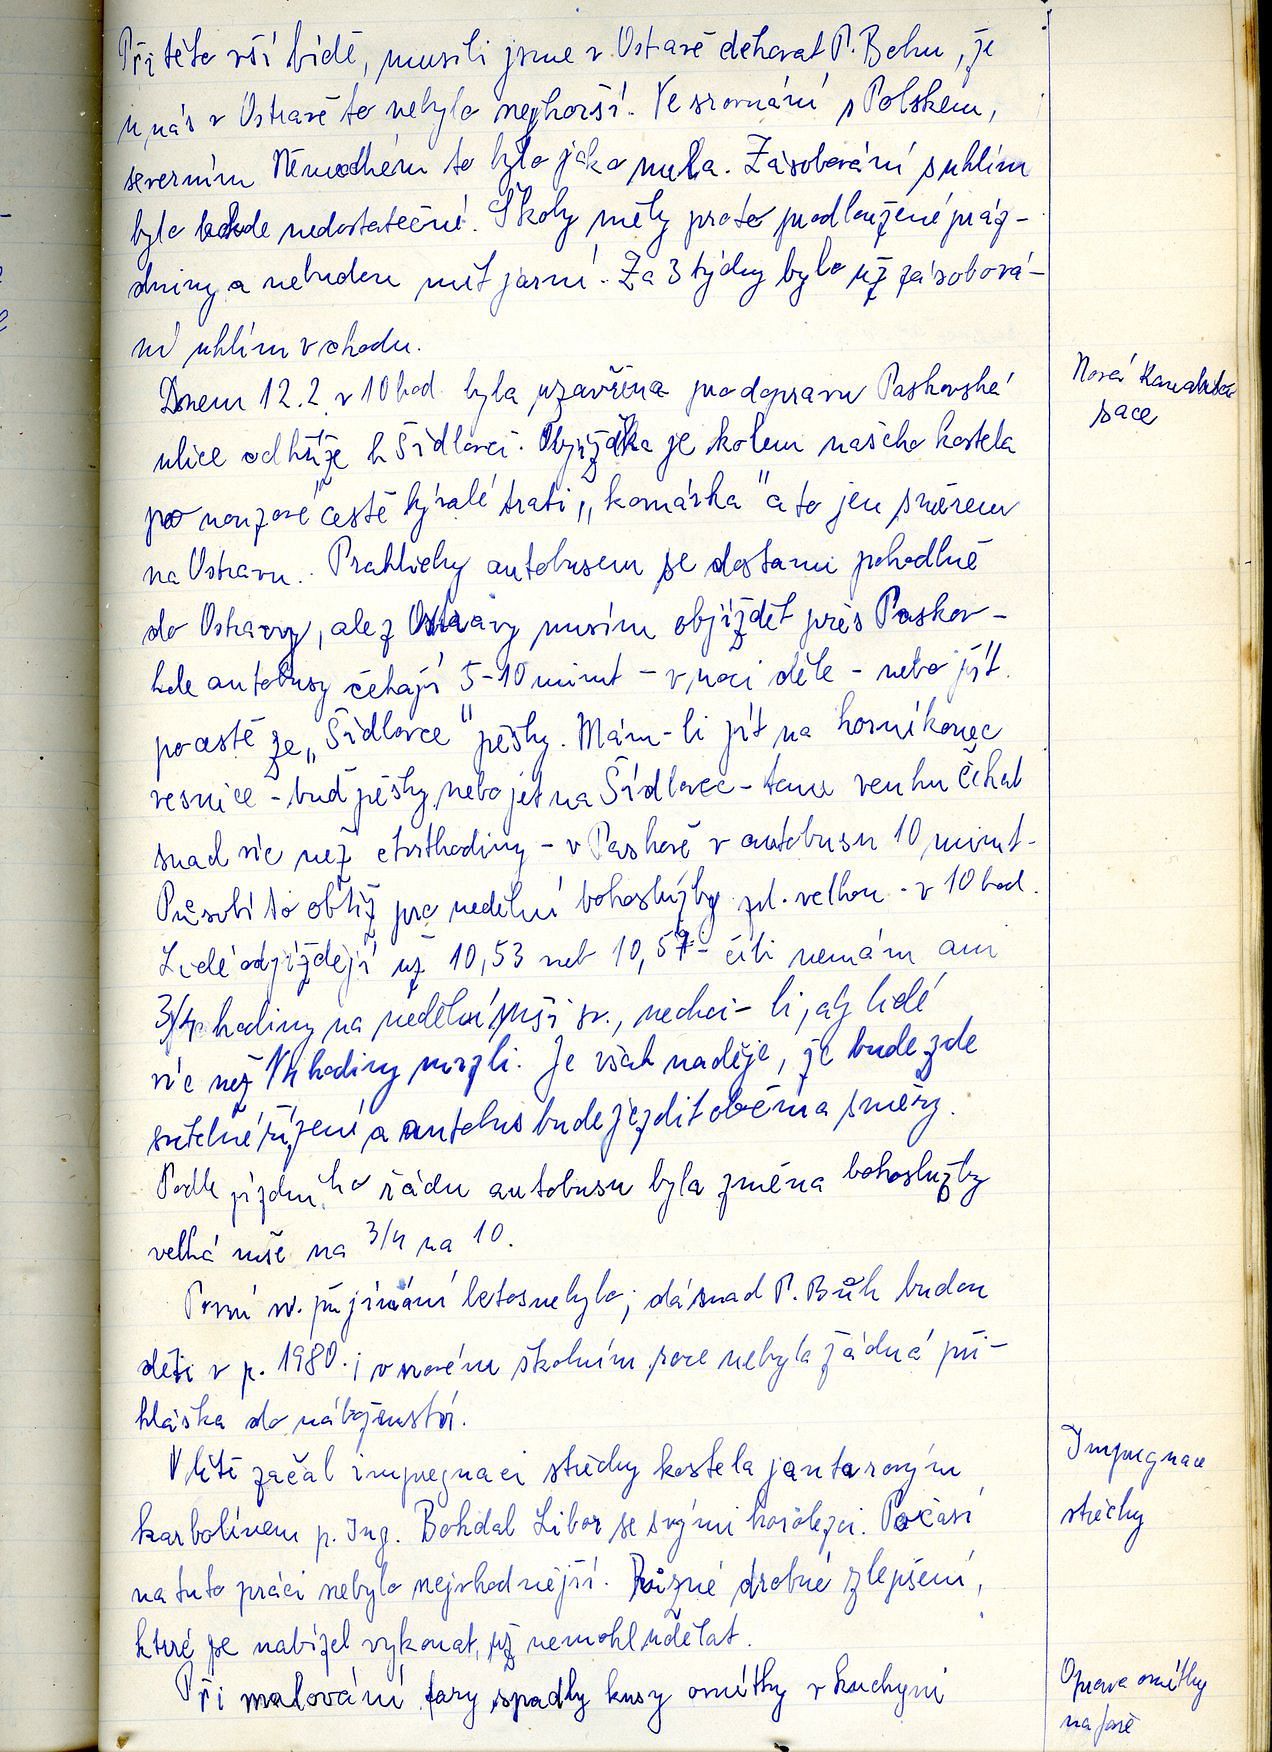 Při této vší bídě, musili jsme v Ostravě děkovat P. Bohu, že
u nás v Ostravě to nebylo nejhorší. Ve srovnání s Polskem,
severním Německem to bylo jako nula. Zásobování s uhlím
bylo nedostatečné. Školy měly proto prodloužené práz-
dniny a nebudou mít jarní. Za 3 týdny bylo už zásobová-
ní uhlím v chodu.
Dnem 12.2. v 10 hod byla uzavřena pro dopravu Paskovská
ulice od kříže k Šídlovci. Objížďka je kolem našeho kostela
po nouzové cestě bývalé trati „komárka" a to jen směrem
na Ostravu. Prakticky autobusem se dostanu pohodlně
do Ostravy, ale z Ostravy musím objíždět přes Paskov -
kde autobusy čekají 5-10 minut - v noci déle - nebo jít
po cestě ze „Šídlovce" pěšky. Mám-li jít na horní konec
vesnice - buď pěšky nebo jet na Šídlovec - tam venku čekat
snad víc než čtvrthodiny - v Paskově v autobusu 10 minut.
Působí to obtíž pro nedělní bohoslužby zvl. velkou - v 10 hod.
Lidé odjíždějí už 10,53 neb 10,57 - čili nemám ani
3/4 hodiny na nedělní mši sv., nechci-li, aby lidé
víc než 1/4 hodiny mrzli. Je však naděje, že bude zde
světelné řízení a autobus bude jezdit oběma směry.
Podle jízdního řádu autobusu byla změna bohoslužby
velká mše na 3/4 na 10.
První sv. přijímání letos nebylo; dá snad P. Bůh budou
děti v r. 1980. i v novém školním roce nebyla žádná při-
hláška do náboženství.
V létě začal impregnaci střechy kostela jantarovým
karbolínem p. Ing. Bohdal Libor se svými kolegi. Počasí
na tuto práci nebylo nejvhodnější. Různé drobné zlepšení,
které se nabízel vykonat, už nemohl udělat.
Při malování fary spadly kusy omítky v kuchyni
Nová kanali-
sace
Impregnace
střechy
Oprava omítky
na faře